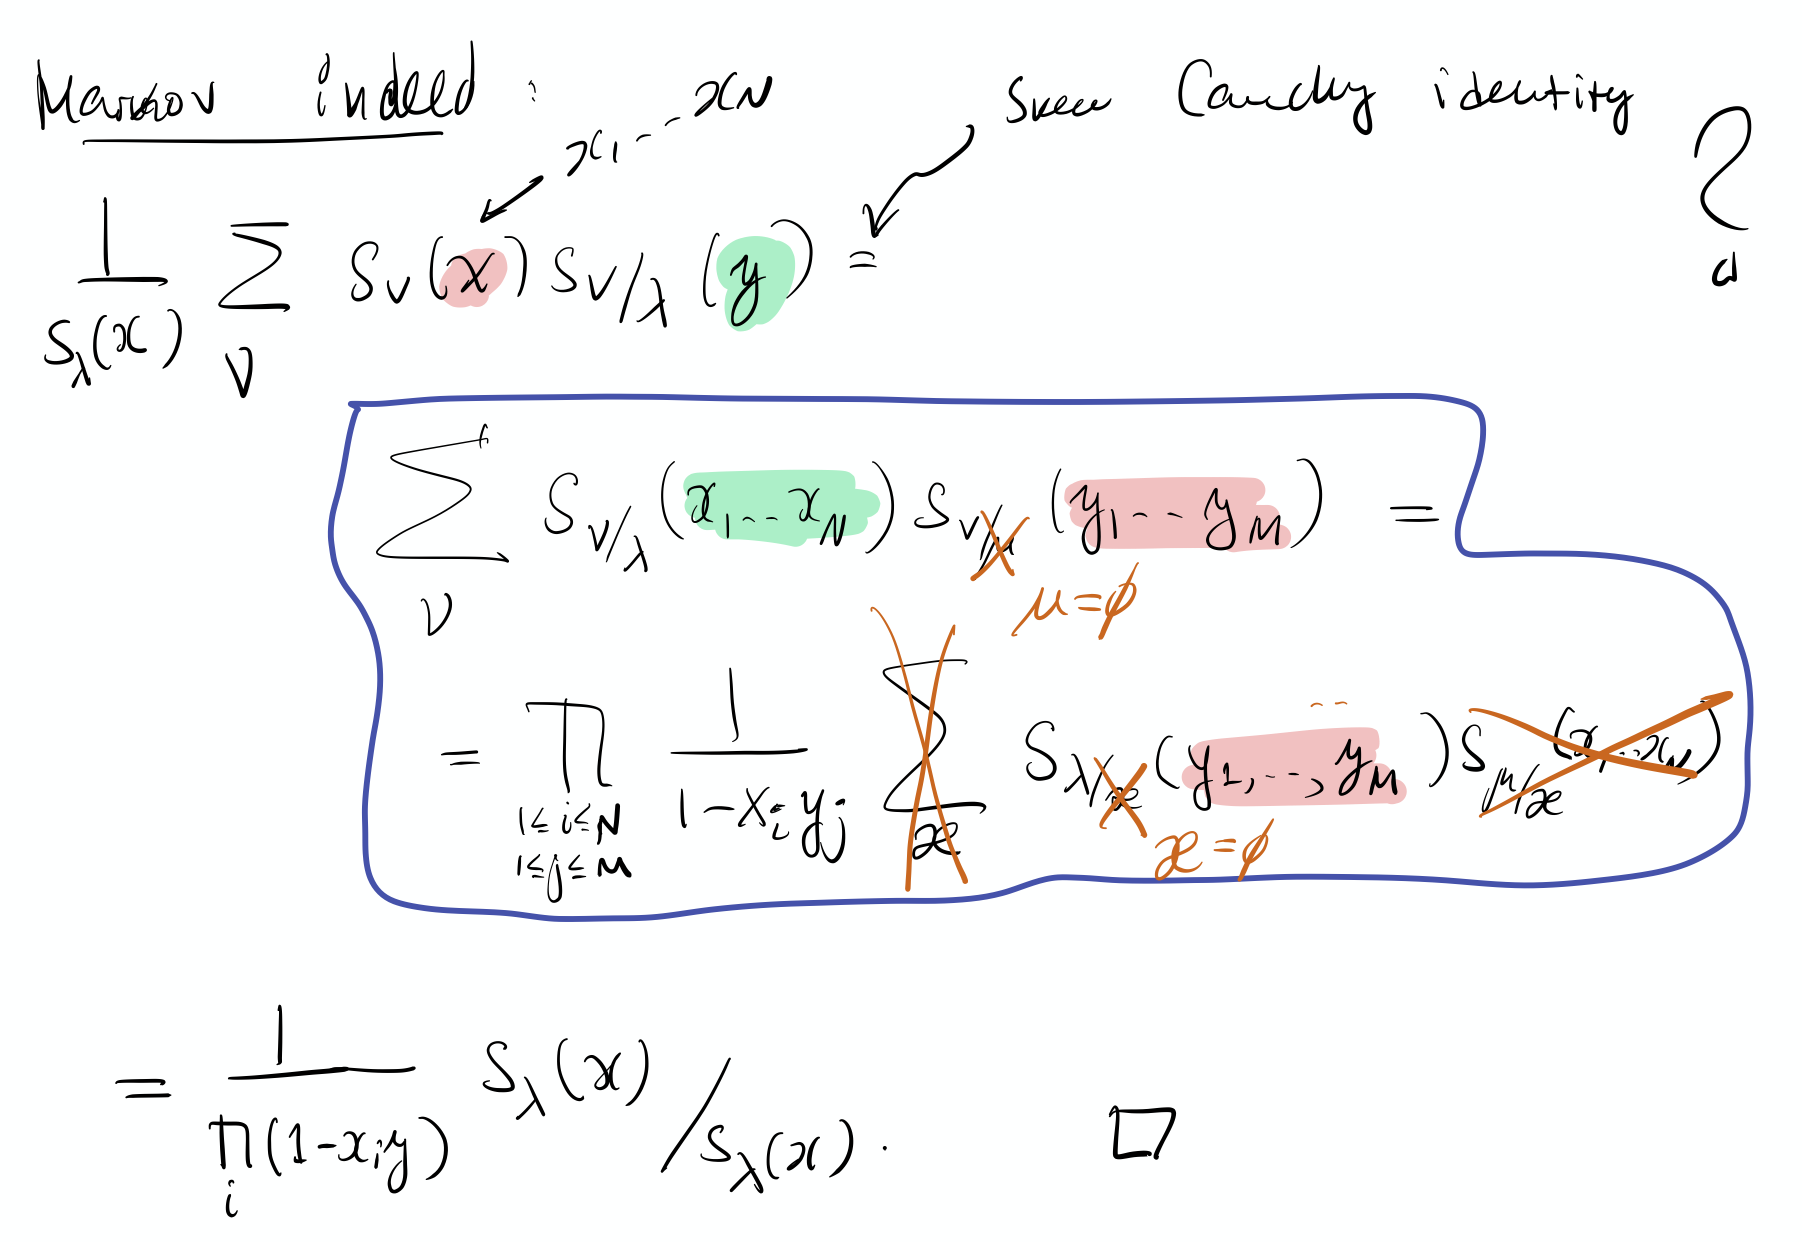 Markov indeed :
x₁ -- x_N
Skew Cauchy identity
?
1/S_λ(x) ∑_ν S_ν(x) S_{ν/λ}(y) =
∑_ν S_{ν/λ}(x₁ -- x_N) S_{ν/μ}(y₁ -- y_M) =
μ = ϕ
= ∏_{1≤i≤N, 1≤j≤M} 1/(1-x_i y_j) ∑_æ S_{λ/æ}(y₁, --, y_M) S_{μ/æ}(x₁ .. x_N)
æ = ϕ
= 1/∏_i(1-x_i y) S_λ(x) / S_λ(x) . □